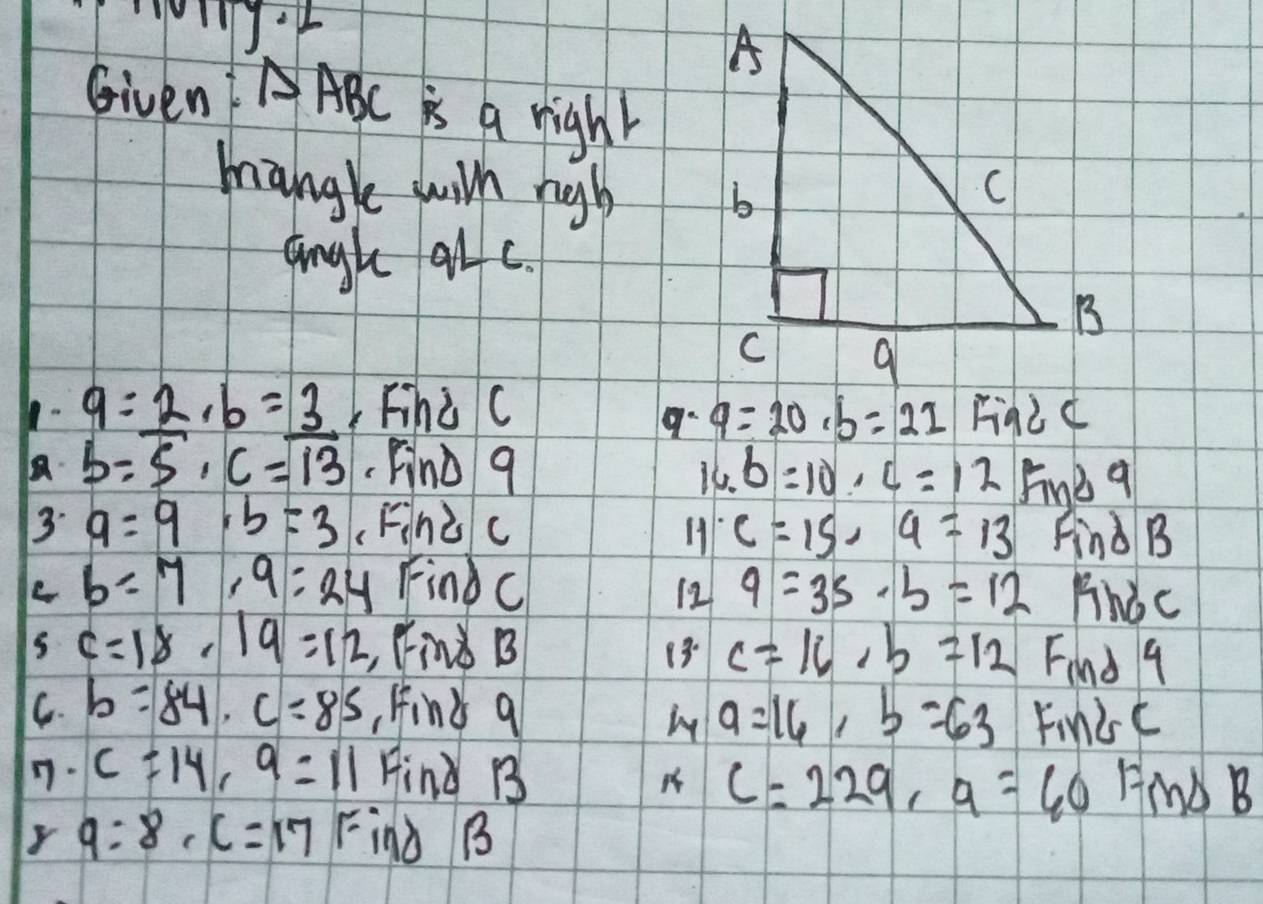 Given: △ ABC is a right
triangle with righ
angle at C.
A
b
C
B
C
a
1. a = 2, b = 3, Find C
2. b = 5, C = 13. Find a
3. a = 9, b = 3, Find C
b = 7, a = 24 Find C
5 C = 18, a = 12, Find B
6. b = 84, C = 85, Find a
7. C = 14, a = 11 Find B
8 a = 8, C = 17 Find B
9. a = 20, b = 21 Find C
10. b = 10, C = 12 Find a
11. C = 15, a = 13 Find B
12 a = 35, b = 12 Find C
13. C = 16, b = 12 Find a
14 a = 16, b = 63 Find C
C = 229, a = 60 Find B